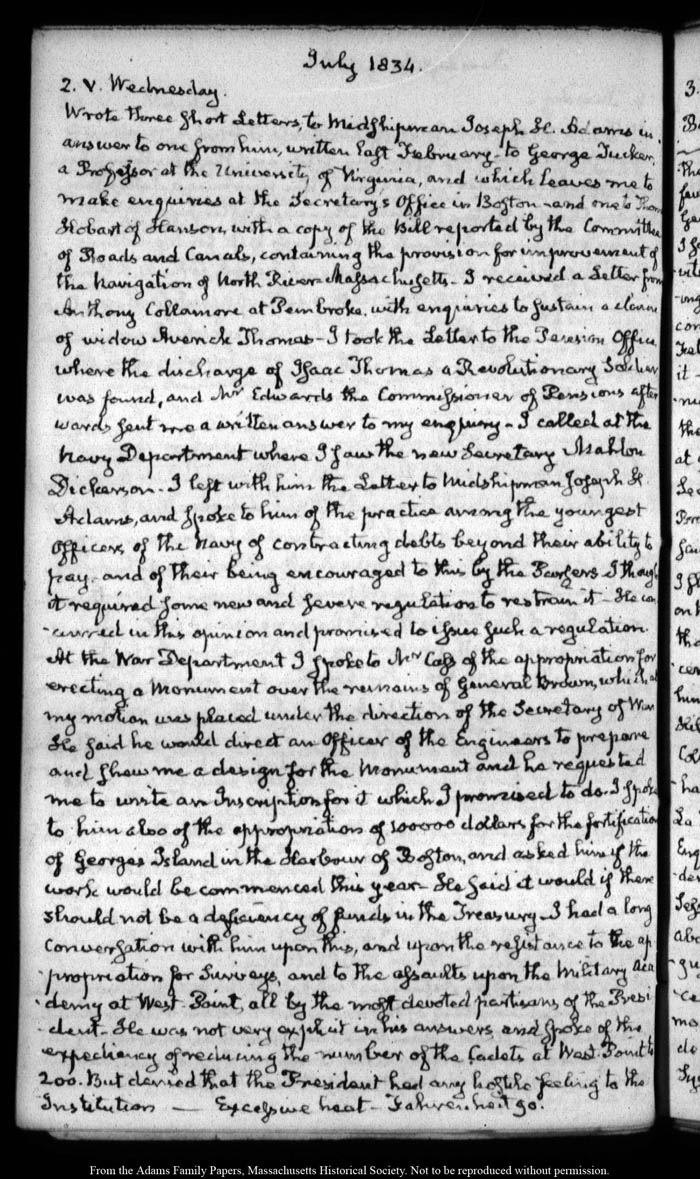 July 1834.
2. V. Wednesday.
Wrote three short Letters, to Midshipman Joseph H. Adams in
answer to one from him, written last February - to George Tucker,
a Professor at the University of Virginia, and which leaves me to
make enquiries at the Secretary's Office in Boston - and one to Thom
Hobart of Hanson, with a copy of the Bill reported by the Committee
of Roads and Canals, containing the provision for improvement of
the navigation of North River Massachusetts - I received a Letter from
Anthony Collamore at Pembroke, with enquiries to sustain a claim
of widow Thomas - I took the Letter to the Pension Office,
where the discharge of Isaac Thomas a Revolutionary Soldier
was found, and Mr Edwards the Commissioner of Pensions after
wards sent me a written answer to my enquiry - I called at the
Navy Department where I saw the new Secretary Mahlon
Dickerson - I left with him the Letter to Midshipman Joseph H.
Adams, and spoke to him of the practice among the youngest
Officers of the Navy of contracting debts beyond their ability to
pay, and of their being encouraged to this by the Pursers. I though
it required some new and severe regulation to restrain it - He con
-curred in this opinion and promised to issue such a regulation.
At the War Department I spoke to Mr Cass of the appropriation for
erecting a Monument over the remains of General Brown, which at
my motion was placed under the direction of the Secretary of War
He said he would direct an Officer of the Engineers to prepare
and shew me a design for the Monument and he requested
me to write an Inscription for it which I promised to do. I spoke
to him also of the appropriation of 100000 dollars for the fortification
of Georges Island in the Harbour of Boston, and asked him if the
work would be commenced this year - He said it would if there
should not be a deficiency of funds in the Treasury - I had a long
conversation with him upon this, and upon the resistance to the ap
-propriation for Surveys, and to the assaults upon the Military Aca
-demy at West-Point, all by the most devoted partisans of the Presi
-dent - He was not very explicit in his answers, and spoke of the
expediency of reducing the number of the Cadets at West-Point to
200. But denied that the President had any hostile feeling to the
Institution — Excessive heat - Fahrenheit 90.
From the Adams Family Papers, Massachusetts Historical Society. Not to be reproduced without permission.